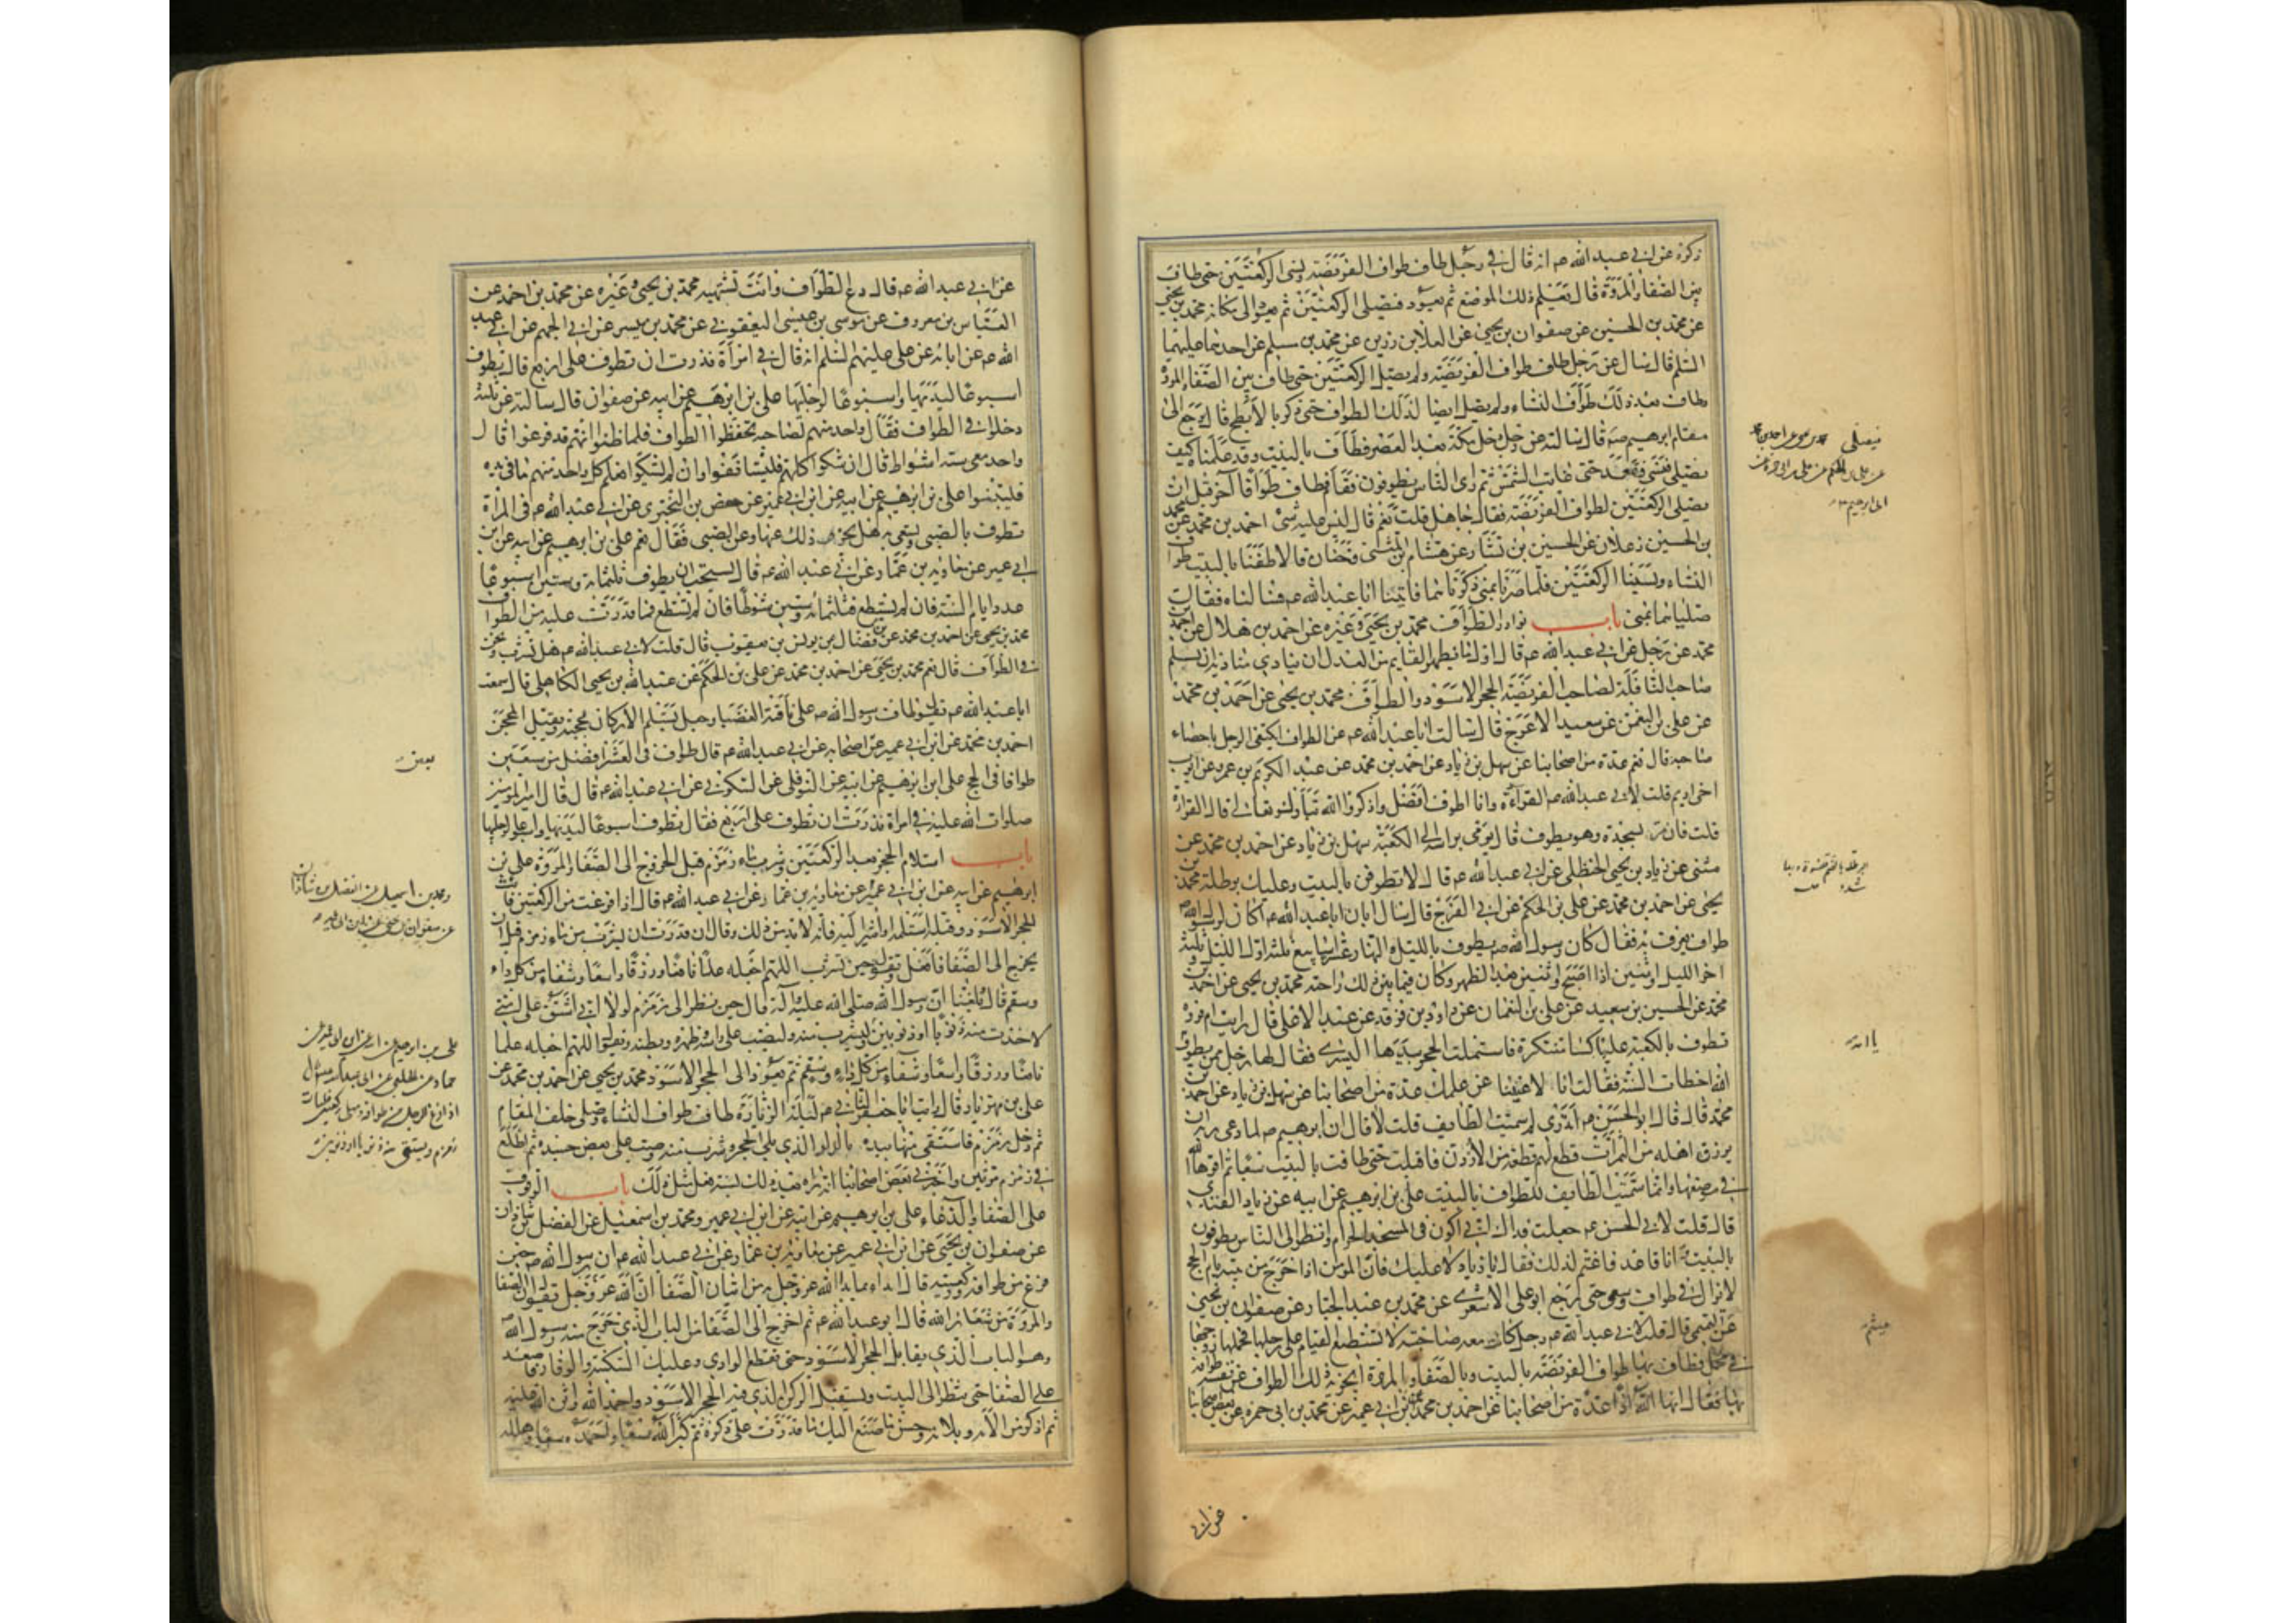 ذكره عن ابي عبد الله ع انه قال في رجل طاف طواف الفريضة ونسي الركعتين حتى طاف
بين الصفا والمروة قال يعلم ذلك الموضع ثم يعود فيصلي الركعتين ثم يعود الى مكانه محمد بن يحيى
عن محمد بن الحسين عن صفوان بن يحيى عن العلا بن رزين عن محمد بن مسلم عن احدهما عليهما
السلم قال سال عن رجل طاف طواف الفريضة ولم يصل الركعتين حتى طاف بين الصفا والمروة
وطاف بعد ذلك طواف النساء ولم يصل ايضا لذلك الطواف حتى ذكر بالابطح قال يرجع الى
مقام ابرهيم قال سالته عن رجل دخل مكة بعد العصر فطاف بالبيت وقد علمناه كيف
يصلي فنسي فقعد حتى غابت الشمس ثم راى الناس يطوفون فقام فطاف طوافا آخر قبل ان
يصلي الركعتين لطواف الفريضة فقال جاهل قلت نعم قال ليس عليه شيء احمد بن محمد عن محمد
بن الحسين زعلان عن الحسين بن بشار عن هشام بن المثنى وحنان قالا طفنا بالبيت طواف
النساء ونسينا الركعتين فلما صرنا بمنى ذكرناهما فاتينا ابا عبد الله ع فسالناه فقال
صلياهما بمنى باب نوادر الطواف محمد بن يحيى وغيره عن احمد بن هلال عن احمد بن
محمد عن رجل عن ابي عبد الله ع قال اول ما يظهر القايم من العدل ان ينادي مناديه ان يسلم
صاحب النافلة لصاحب الفريضة الحجر الاسود والطواف محمد بن يحيى عن احمد بن محمد
عن علي بن النعمن عن سعيد الاعرج قال سالت ابا عبد الله ع عن الطواف ايكتفي الرجل باحصاء
صاحبه قال نعم عدة من اصحابنا عن سهل بن زياد عن احمد بن محمد عن عبد الكريم بن عمرو عن ايوب
اخي اديم قلت لابي عبد الله ع القراءة وانا اطوف افضل او اذكر الله تبارك وتعالى قال القراءة
قلت فان مر بسجدة وهو يطوف قال يومى براسه الى الكعبة سهل بن زياد عن احمد بن محمد عن
مثنى عن زياد بن يحيى الحنظلي عن ابي عبد الله ع قال لا تطوفن بالبيت وعليك برطلة محمد بن
يحيى عن احمد بن محمد عن علي بن الحكم عن ابي الفرج قال سال ابان ابا عبد الله ع اكان لرسول الله ص
طواف يعرف به فقال كان رسول الله ص يطوف بالليل والنهار عشرة اسابيع ثلثة اول الليل وثلثة
اخر الليل واثنين اذا اصبح واثنين بعد الظهر وكان فيما بين ذلك راحته محمد بن يحيى عن احمد بن
محمد عن الحسين بن سعيد عن علي بن النعمان عن داود بن فرقد عن عبد الاعلى قال رايت ام فروة
تطوف بالكعبة عليها كساء متنكرة فاستلمت الحجر بيدها اليسرى فقال لها رجل ممن يطوف
امة الله اخطات السنة فقالت انا لاغنياء عن علمك عدة من اصحابنا عن سهل بن زياد عن احمد بن
محمد قال قال ابو الحسن ع اتدري لم سميت الطايف قلت لا قال ان ابرهيم ع لما دعى ربه ان
يرزق اهله من الثمرات قطع لهم قطعة من الاردن فاقبلت حتى طافت بالبيت سبعا ثم اقرها الله
في موضعها وانما سميت الطايف للطواف بالبيت علي بن ابرهيم عن ابيه عن زياد القندي
قال قلت لابي الحسن ع جعلت فداك اني اكون في المسجد الحرام وانظر الى الناس يطوفون
بالبيت وانا قاعد فاغتم لذلك فقال يا زياد لا عليك فان المومن اذا خرج من بيته يام الحج
لا يزال في طواف وسعي حتى يرجع ابو علي الاشعري عن محمد بن عبد الجبار عن صفوان بن يحيى
عن التيمي قال قلت لابي عبد الله ع رجل كانت معه صاحبة لا تستطيع القيام على رجلها فحملها زوجها
في محمل فطاف بها طواف الفريضة بالبيت وبالصفا والمروة ايجزيه ذلك الطواف عن نفسه طوافه
بها فقال ايها الله اذا عدة من اصحابنا عن احمد بن محمد عن ابن ابي عمير عن محمد بن ابي حمزه عن بعض اصحابنا
عن ابي
عن ابي عبد الله ع قال دع الطواف وانت تشتهيه محمد بن يحيى وغيره عن محمد بن احمد عن
العباس بن معروف عن موسى بن عيسى اليعقوبي عن محمد بن ميسر عن ابي الجهم عن ابي عبد
الله ع عن ابائه عن علي عليهم السلم انه قال في امراة نذرت ان تطوف على اربع قال تطوف
اسبوعا ليديها واسبوعا لرجليها علي بن ابرهيم عن ابيه عن صفوان قال سالته عن ثلثة
دخلوا في الطواف فقال واحد منهم لصاحبه تحفظوا الطواف فلما ظنوا انهم قد فرغوا قال
واحد معي ستة اشواط قال ان شكوا كلهم فليستانفوا وان لم يشكوا وعلم كل واحد منهم ما في يده
فليبنوا علي بن ابرهيم عن ابيه عن ابن ابي عمير عن حفص بن البختري عن ابي عبد الله ع في المراة
تطوف بالصبي وتسعى به هل يجزي ذلك عنها وعن الصبي فقال نعم علي بن ابرهيم عن ابيه عن ابن
ابي عمير عن معاوية بن عمار عن ابي عبد الله ع قال يستحب ان يطوف ثلثمائة وستين اسبوعا
عدد ايام السنة فان لم يستطع فثلثمائة وستين شوطا فان لم تستطع فما قدرت عليه من الطواف
محمد بن يحيى عن احمد بن محمد عن ابن فضال عن يونس بن يعقوب قال قلت لابي عبد الله ع هل نشرب ونحن
في الطواف قال نعم محمد بن يحيى عن احمد بن محمد عن علي بن الحكم عن عبد الله بن يحيى الكاهلي قال سمعت
ابا عبد الله ع يقول طاف رسول الله ص على ناقته العضبا وجعل يستلم الاركان بمحجنه ويقبل المحجن
احمد بن محمد عن ابن ابي عمير عن اصحابه عن ابي عبد الله ع قال طواف في العشر افضل من سبعين
طوافا في الحج علي ابن ابرهيم عن ابيه عن النوفلي عن السكوني عن ابي عبد الله ع قال قال امير المومنين
صلوات الله عليه في امراة نذرت ان تطوف على اربع فقال تطوف اسبوعا ليديها واسبوعا لرجليها
باب استلام الحجر بعد الركعتين وشرب ماء زمزم قبل الخروج الى الصفا والمروة علي بن
ابرهيم عن ابيه عن ابن ابي عمير عن معاوية بن عمار عن ابي عبد الله ع قال اذا فرغت من الركعتين فات
الحجر الاسود وقبله واستلمه او اشر اليه فانه لا بد من ذلك وقال ان قدرت ان تشرب من ماء زمزم قبل ان
يخرج الى الصفا فافعل وتقول حين تشرب اللهم اجعله علما نافعا ورزقا واسعا وشفاء من كل داء
وسقم قال بلغنا ان رسول الله صلى الله عليه وآله قال حين نظر الى زمزم لولا اني اشق على امتي
لاخذت منه ذنوبا او ذنوبين وليشرب منه وليصب على راسه وظهره وبطنه ويقول اللهم اجعله علما
نافعا ورزقا واسعا وشفاء من كل داء وسقم ثم يعود الى الحجر الاسود محمد بن يحيى عن احمد بن محمد عن
علي بن مهزيار قال رايت ابا جعفر الثاني ع ليلة الزيارة طاف طواف النساء وصلى خلف المقام
ثم دخل زمزم فاستقى منها بيده بالدلو الذي يلي الحجر وشرب منه وصب على بعض جسده ثم اطلع
في زمزم مرتين واخبرني بعض اصحابنا انه راه بعد ذلك بسنة فعل مثل ذلك باب الوقوف
على الصفا والدعاء علي بن ابرهيم عن ابيه عن ابن ابي عمير ومحمد بن اسمعيل عن الفضل بن شاذان
عن صفوان بن يحيى عن ابن ابي عمير عن معاوية بن عمار عن ابي عبد الله ع ان رسول الله ص حين
فرغ من طوافه وركعتيه قال ابداء بما بدا الله عز وجل به من اتيان الصفا ان الله عز وجل يقول ان الصفا
والمروة من شعائر الله قال ابو عبد الله ع ثم اخرج الى الصفا من الباب الذي خرج منه رسول الله ص
وهو الباب الذي يقابل الحجر الاسود حتى تقطع الوادي وعليك السكينة والوقار فاصعد
على الصفا حتى تنظر الى البيت وتستقبل الركن الذي فيه الحجر الاسود واحمد الله واثن عليه
ثم اذكر من الآئه وبلائه وحسن ما صنع اليك ما قدرت على ذكره ثم كبر الله سبعا واحمده سبعا وهلله